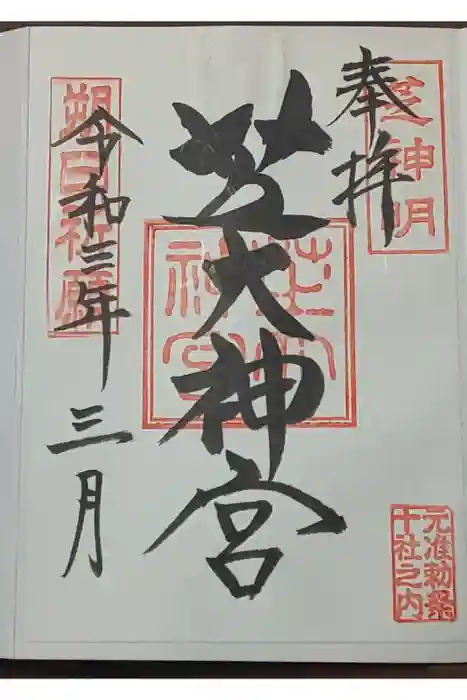 奉拝
芝神明
芝大神宮
芝大神宮
朔日社願
令和三年
三月
元准勅祭
十社之内